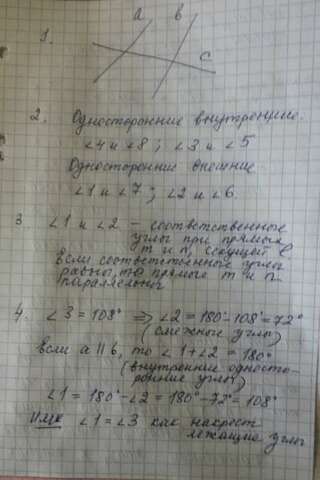 а в
1.
с
2. Односторонние внутренние.
∠4 и ∠8 ; ∠3 и ∠5
Односторонние внешние
∠1 и ∠7 ; ∠2 и ∠6
3. ∠1 и ∠2 – соответственные
углы при прямых
m и n, секущей
Если соответственные углы
равны, то прямые m и n
параллельны
4. ∠3 = 108° ⇒ ∠2 = 180°-108° = 72°
(смежные углы)
Если a || b, то ∠1+∠2 = 180°
(внутренние односто-
ронние углы)
∠1 = 180° - ∠2 = 180° - 72° = 108°
Или ∠1 = ∠3 как накрест
лежащие углы